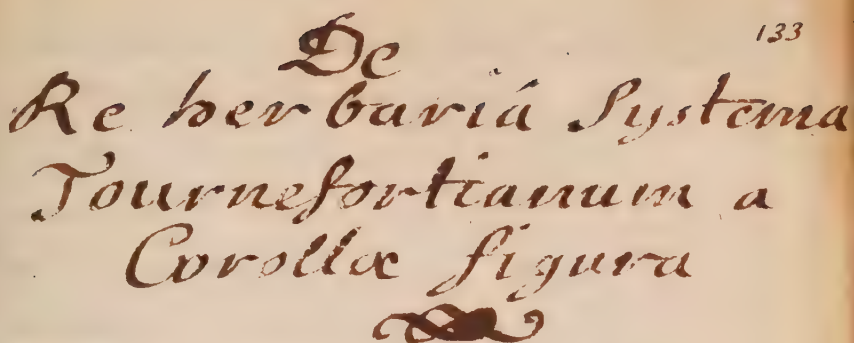 133
De
Re herbariá Systema
Tournefortianum a
Corollæ figura